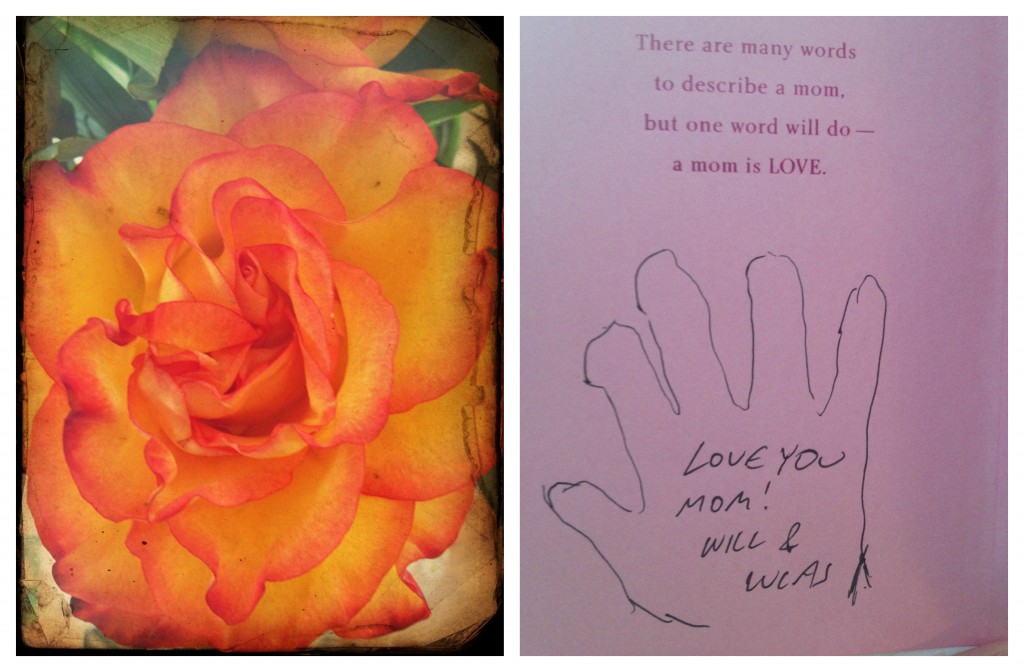 There are many words
to describe a mom,
but one word will do —
a mom is LOVE.
LOVE YOU
MOM!
WILL &
LUCAS